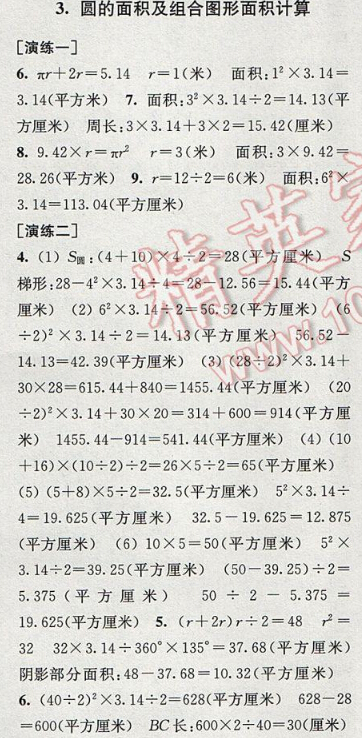 3. 圆的面积及组合图形面积计算
[演练一]
6. πr+2r=5.14 r=1(米) 面积:1²×3.14=
3.14(平方米) 7. 面积:3²×3.14÷2=14.13(平
方厘米) 周长:3×3.14+3×2=15.42(厘米)
8. 9.42×r=πr² r=3(米) 面积:3×9.42=
28.26(平方米) 9. r=12÷2=6(米) 面积:6²×
3.14=113.04(平方厘米)
[演练二]
4. (1) S圆:(4+10)×4÷2=28(平方厘米) S
梯形:28-4²×3.14÷4=28-12.56=15.44(平方
厘米) (2) 6²×3.14÷2=56.52(平方厘米) (6
÷2)²×3.14÷2=14.13(平方厘米) 56.52-
14.13=42.39(平方厘米) (3) (28÷2)²×3.14+
30×28=615.44+840=1455.44(平方厘米) (20
÷2)²×3.14+30×20=314+600=914(平方厘
米) 1455.44-914=541.44(平方厘米) (4) (10
+16)×(10÷2)÷2=26×5÷2=65(平方厘米)
(5) (5+8)×5÷2=32.5(平方厘米) 5²×3.14÷
4=19.625(平方厘米) 32.5-19.625=12.875
(平方厘米) (6) 10×5=50(平方厘米) 5²×
3.14÷2=39.25(平方厘米) (50-39.25)÷2=
5.375(平方厘米) 50÷2-5.375=
19.625(平方厘米) 5. (r+2r)r÷2=48 r²=
32 32×3.14÷360°×135°=37.68(平方厘米)
阴影部分面积:48-37.68=10.32(平方厘米)
6. (40÷2)²×3.14÷2=628(平方厘米) 628-28
=600(平方厘米) BC长:600×2÷40=30(厘米)
精英家